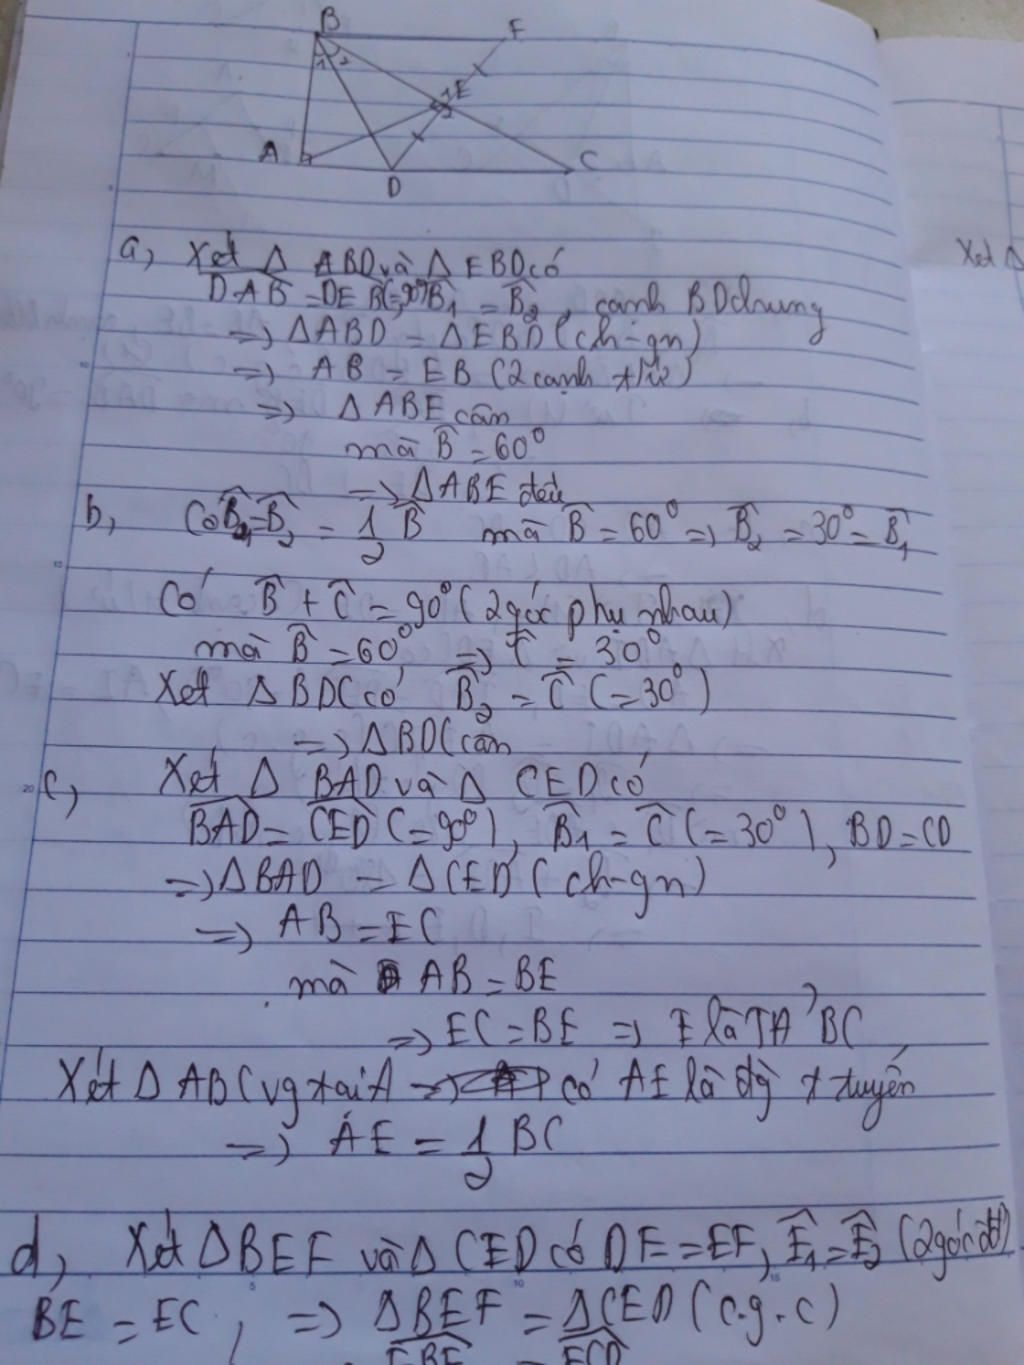 B F
1 2 1 E
2
A C
D
a, Xét Δ ABD và Δ EBD có
DAB = DEB (=90°) B1 = B2, cạnh BD chung
=> ΔABD = ΔEBD (ch-gn)
=> AB = EB (2 cạnh t/ứ)
=> Δ ABE cân
mà B = 60°
=> ΔABE đều
b, Có B1 = B2 = 1/2 B mà B = 60° => B2 = 30° = B1
Có B + C = 90° (2 góc phụ nhau)
mà B = 60° => C = 30°
Xét Δ BDC có B2 = C (= 30°)
=> ΔBDC cân
c, Xét Δ BAD và Δ CED có
BAD = CED (= 90°), B1 = C (= 30°), BD = CD
=> ΔBAD = ΔCED (ch-gn)
=> AB = EC
mà AB = BE
=> EC = BE => E là TĐ BC
Xét Δ ABC vg tại A => có AE là đg t tuyến
=> AE = 1/2 BC
d, Xét ΔBEF và Δ CED có DE = EF, E1 = E2 (2 góc đđ)
BE = EC, => ΔBEF = ΔCED (c.g.c)
ECD
Xét Δ